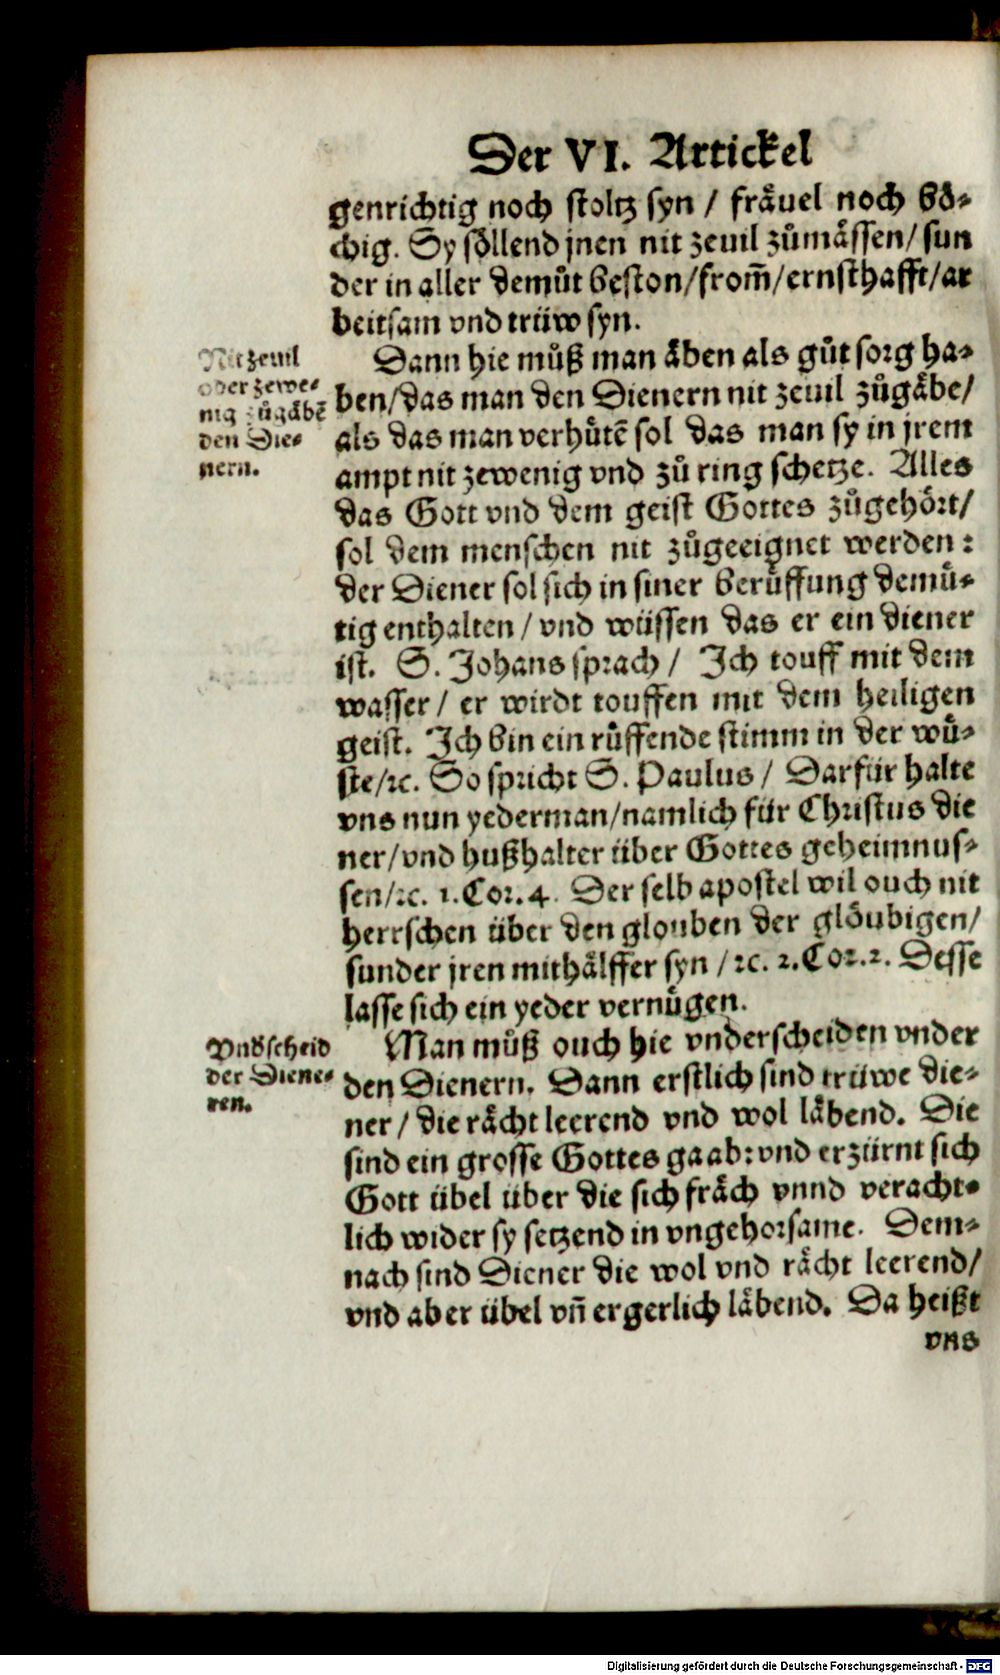 Der VI. Artickel
genrichtig noch stoltz syn / fräuel noch bö⸗
chig. Sy söllend jnen nit zeuil zůmässen/ sun
der in aller demůt beston/from̃/ernsthafft/ar
beitsam vnd trüw syn.
Nit zeuil
oder zewe⸗
nig zůgäbē
den Die⸗
nern.
Dann hie můß man äben als gůt sorg ha⸗
ben/das man den Dienern nit zeuil zůgäbe/
als das man verhütē sol das man sy in jrem
ampt nit zewenig vnd zů ring schetze. Alles
das Gott vnd dem geist Gottes zůgehört/
sol dem menschen nit zůgeeignet werden:
der Diener sol sich in siner berůffung demü⸗
tig enthalten / vnd wüssen das er ein diener
ist. S. Johans sprach / Ich touff mit dem
wasser / er wirdt touffen mit dem heiligen
geist. Ich bin ein růffende stimm in der wü⸗
ste/ꝛc. So spricht S. Paulus / Darfür halte
vns nun yederman/namlich für Christus die
ner/vnd hußhalter über Gottes geheimnus⸗
sen/ꝛc. 1.Cor.4. Der selb apostel wil ouch nit
herrschen über den glouben der glöubigen/
sunder jren mithälffer syn /ꝛc. 2.Cor.2. Desse
lasse sich ein yeder vernügen.
Vndscheid
der Diene⸗
ren.
Man můß ouch hie vnderscheiden vnder
den Dienern. Dann erstlich sind trüwe die⸗
ner / die rächt leerend vnd wol läbend. Die
sind ein grosse Gottes gaab: vnd erzürnt sich
Gott übel über die sich fräch vnnd veracht⸗
lich wider sy setzend in vngehorsame. Dem⸗
nach sind Diener die wol vnd rächt leerend/
vnd aber übel vñ ergerlich läbend. Da heißt
vns
Digitalisierung gefördert durch die Deutsche Forschungsgemeinschaft - DFG